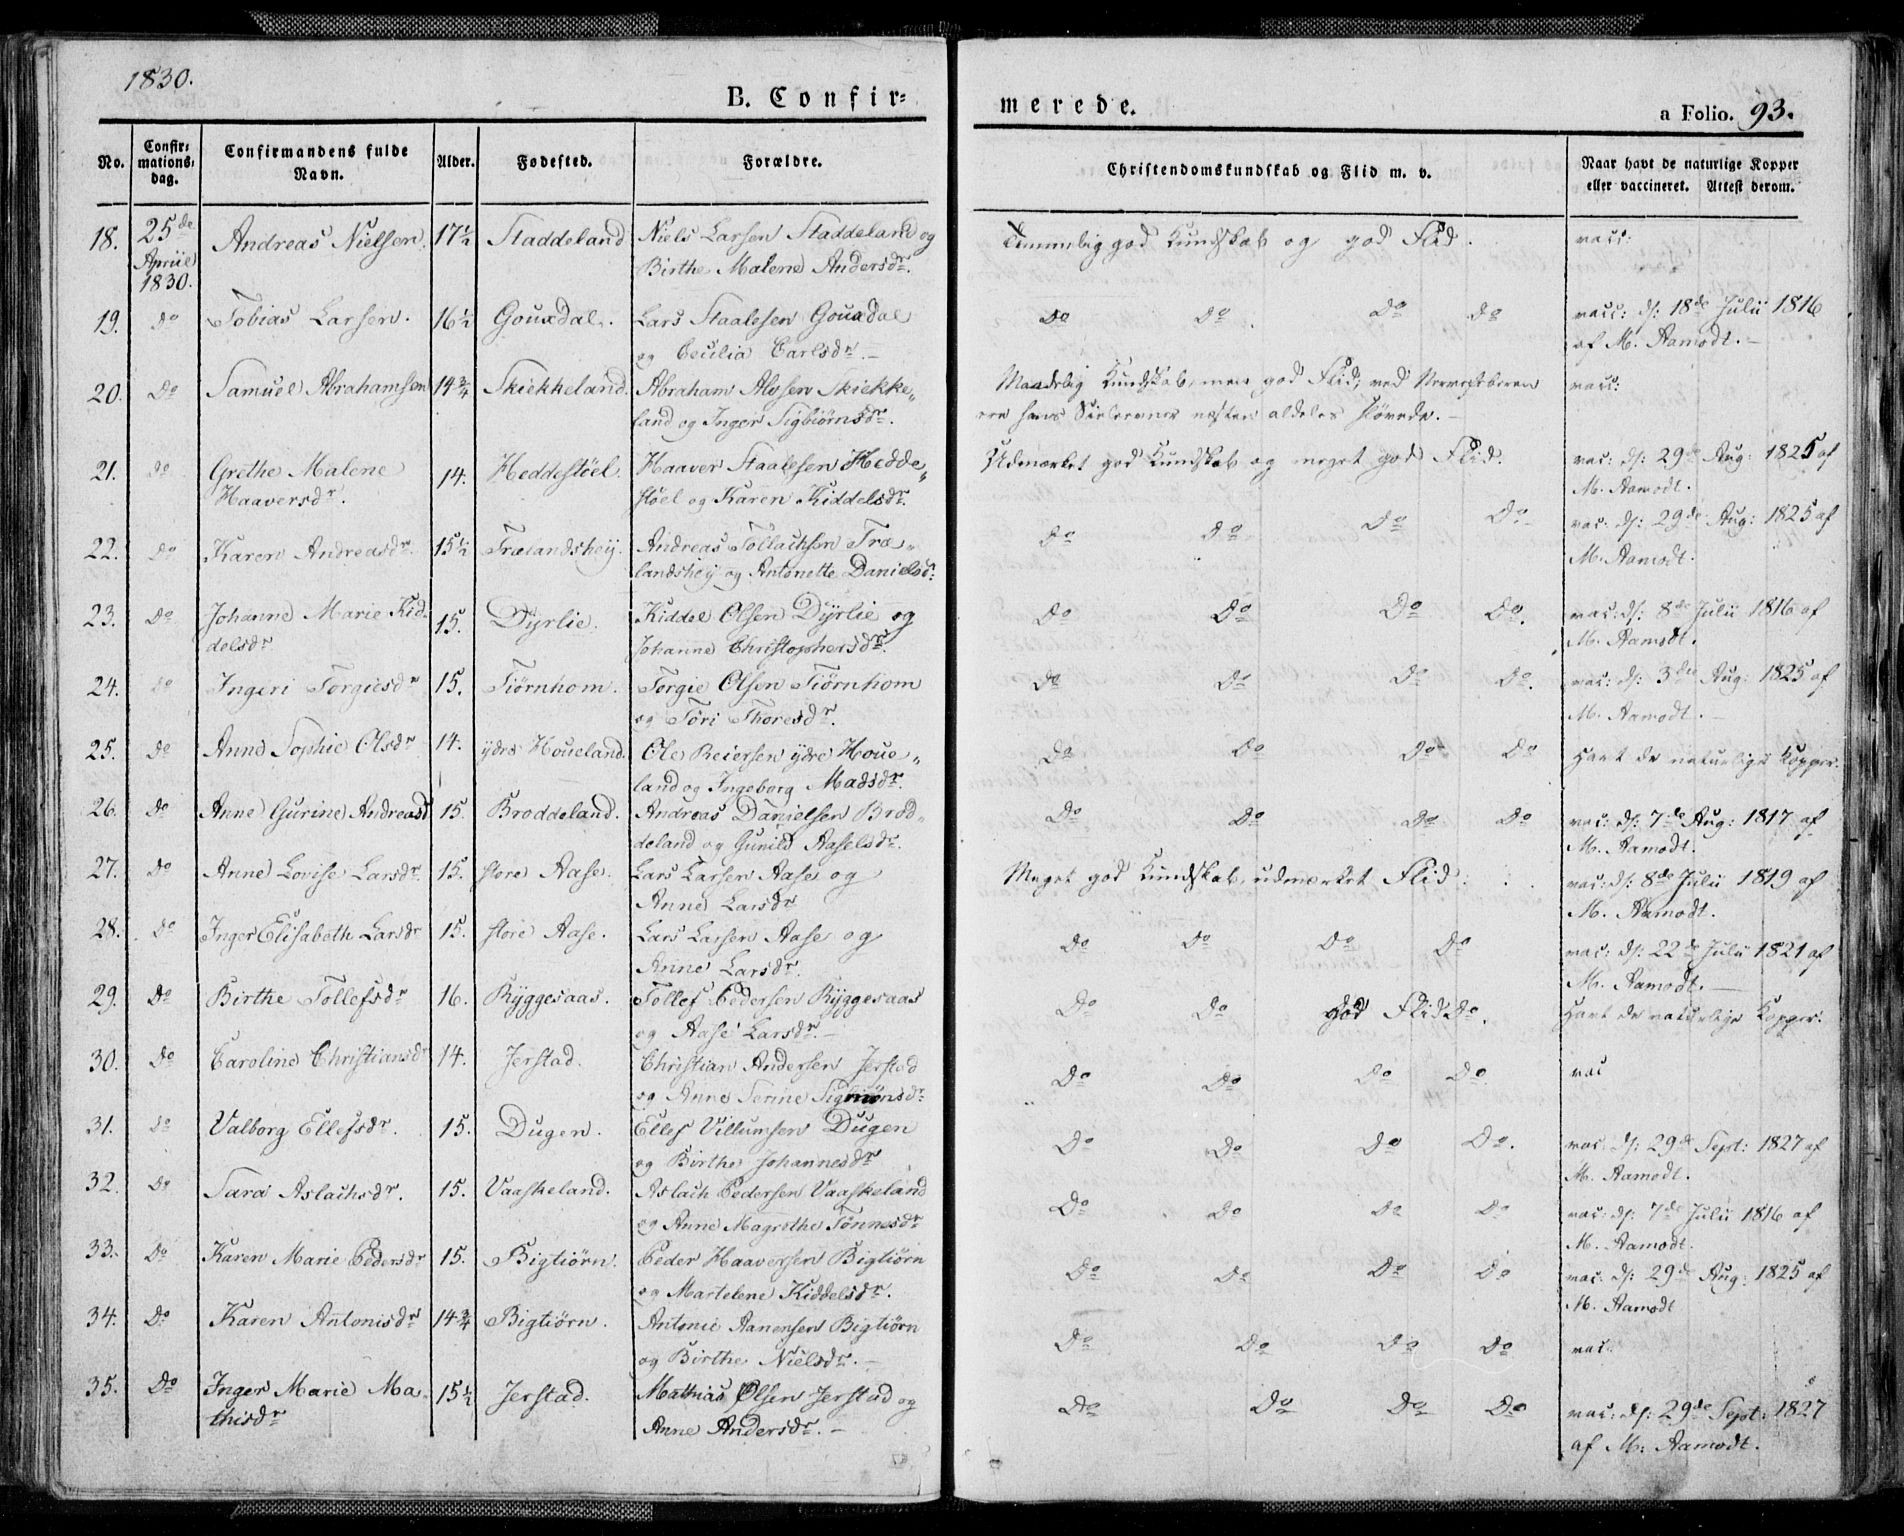 1830.
B. Confir=
merede.
a Folio. 93.
No.
Confir=
mations=
dag.
Confirmandens fulde
Navn.
Alder.
Fødested.
Forældre.
Christendomskundskab og Flid m. v.
Naar havt de naturlige Kopper
eller vaccineret. Attest derom.
18. 25de Andreas Nielsen. 17½ Staddeland Niels Larsen Staddeland og Temmelig god Kundskab og god Flid. vacc:
April Birthe Malene Andersdr.
1830.
19. Do Tobias Larsen. 16½ Gouxdal. Lars Staalesen Gouxdal Do Do Do Do vacc: d: 18de Julii 1816
og Cecilia Carlsdr. — af M. Aamodt. —
20. Do Samuel Abrahamsen 14¾ Skiekkeland. Abraham Alvsen Skiekke„ Maadelig Kundskab, men god Flid, ved Nervefeberen vacc:
land og Inger Sigbiørnsdr. ere hans Siælevner næsten aldeles sløvede. —
21. Do Grethe Malene 14. Heddestøel. Haaver Staalesen Hedde„ Udmærket god Kundskab og meget god Flid. vac: d: 29de Aug: 1825 af
Haaversdr. støel og Karen Kiddelsdr. M. Aamodt.
22. Do Karen Andreasdr. 15½ Trælandshey. Andreas Tollachsen Træ„ Do Do Do Do vac: d: 29de Aug: 1825 af
landshey og Antonette Danielsd: M. Aamodt.
23. Do Johanne Marie Kid„ 15. Dyrlie. Kiddel Olsen Dyrlie og Do Do Do Do. vac: d: 8de Julii 1816 af
delsdr Johanne Christophersdr. M. Aamodt.
24. Do Ingeri Torgiesdr 15. Tiørnhom. Torgie Olsen Tiørnhom Do Do Do Do. vac: d: 3die Aug: 1825 af
og Tori Thoresdr. M. Aamodt. —
25. Do Anne Sophie Olsdr 14. ydre Houeland. Ole Reiersen ydre Houe„ Do Do Do Do Havt de naturlige Kopper.
land og Ingeborg Madsdr.
26. Do Anne Gurine Andreasd 15. Broddeland. Andreas Danielsen Brod„ Do Do Do Do vac: d: 7de Aug: 1817 af
deland og Gunild Aaselsdr. M. Aamodt.
27. Do Anne Lovise Larsdr. 15. store Aase. Lars Larsen Aase og Meget god Kundskab, udmærket Flid. vac: d: 8de Julii 1819 af
Anne Larsdr M. Aamodt.
28. Do Inger Elisabeth Larsdr 15. store Aase. Lars Larsen Aase og Do Do Do Do vac: d: 22de Julii 1821 af
Anne Larsdr. M. Aamodt. —
29. Do Birthe Tollefsdr 16. Ryggesaas. Tollef Pedersen Ryggesaas Do Do god Flid Do. Havt de naturlige Kopper.
og Aase Larsdr. —
30. Do Caroline Christiansdr 14. Jerstad. Christian Andersen Jerstad Do Do Do Do vac
og Anne Serine Sigbiønsdr
31. Do Valborg Ellefsdr. 15. Dugen. Ellef Villumsen Dugen Do Do Do Do. vac. d: 29de Sept: 1827 af
og Birthe Johannesdr M. Aamodt.
32. Do Sara Aslachsdr. 15. Vaaskeland. Aslach Pedersen Vaaskeland Do Do Do Do vac: d: 7de Julii 1816 af
og Anne Magrethe Tønnesdr M. Aamodt.
33. Do Karen Marie Pedersdr 15. Bigtiørn. Peder Haaversen Bigtiørn Do Do Do Do vac: d: 29de Aug: 1825 af
og Martelene Kiddelsdr. M. Aamodt
34. Do Karen Antonisdr 14¾ Bigtiørn. Antonie Aanensen Bigtiørn Do Do Do Do vac.
og Birthe Nielsdr. —
35. Do Inger Marie Ma„ 15½ Jerstad. Mathias Olsen Jerstad og Do Do Do Do vac: d: 29de Sept: 1827
thisdr Anne Andersdr. — af M. Aamodt.